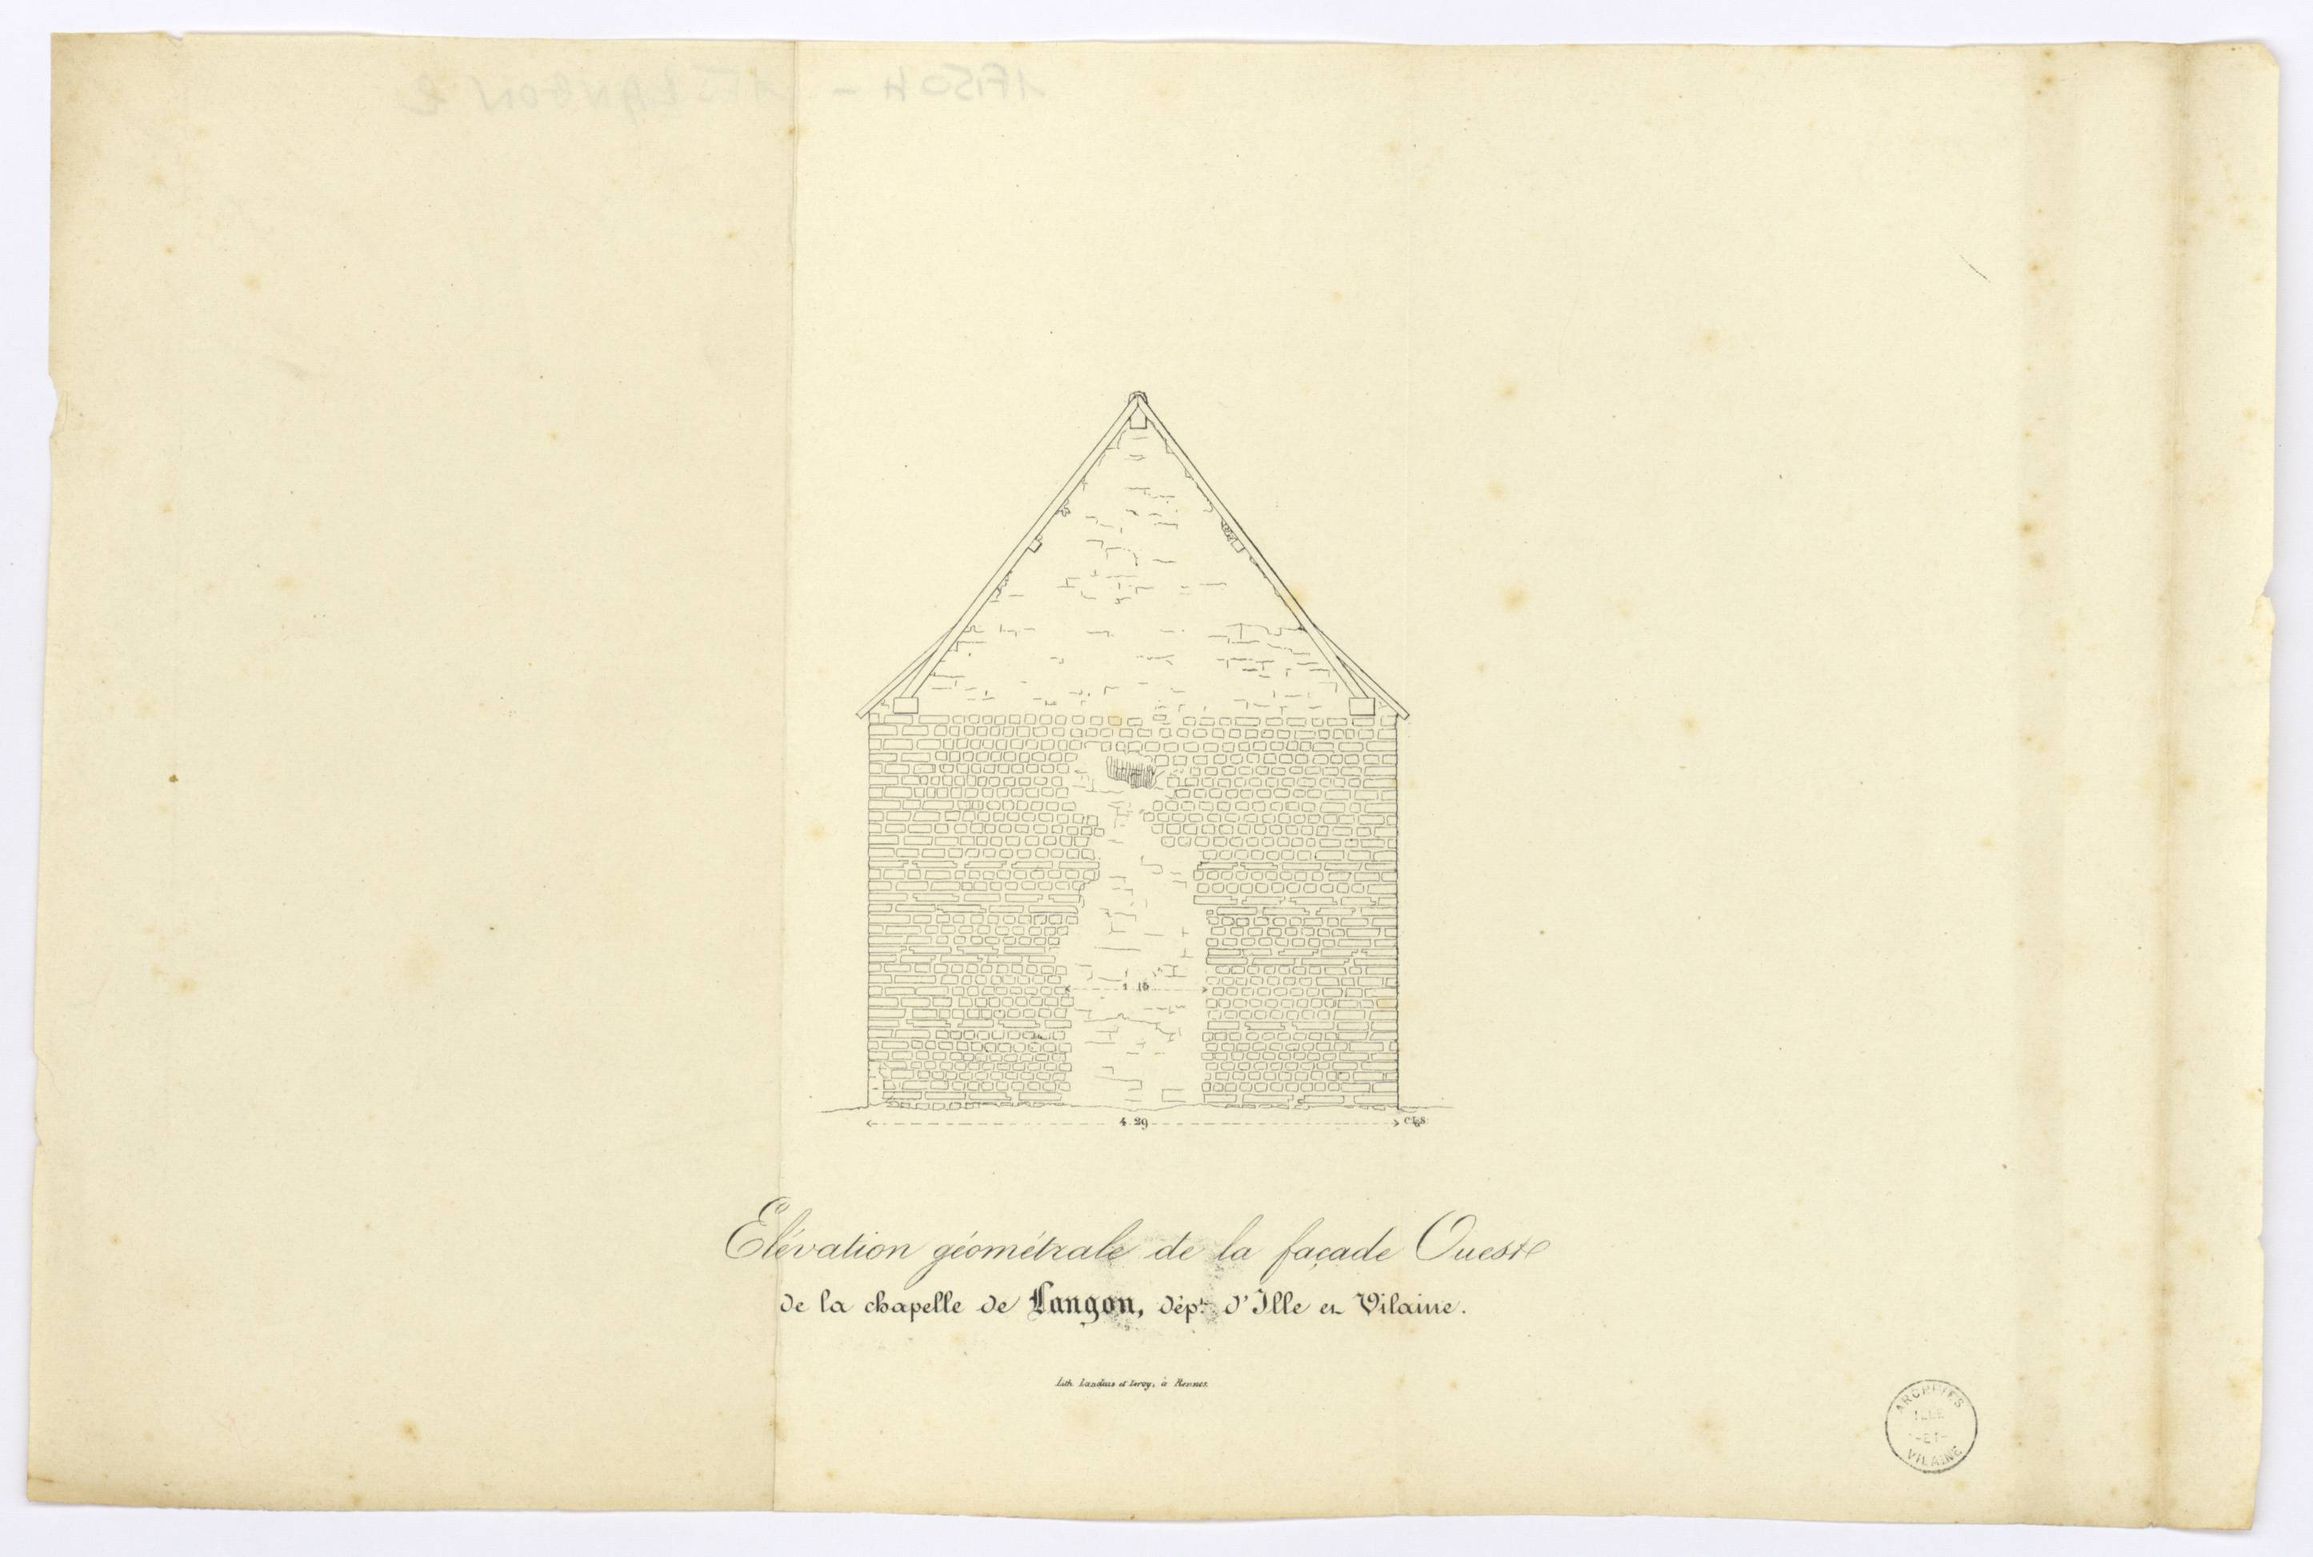 1 15
4 29
Elévation géométrale de la façade Ouest
de la chapelle de Langon, dépt. d'Ille et Vilaine.
Lith. Landais et Leroy, à Rennes.
ARCHIVES
ILLE
-ET-
VILAINE